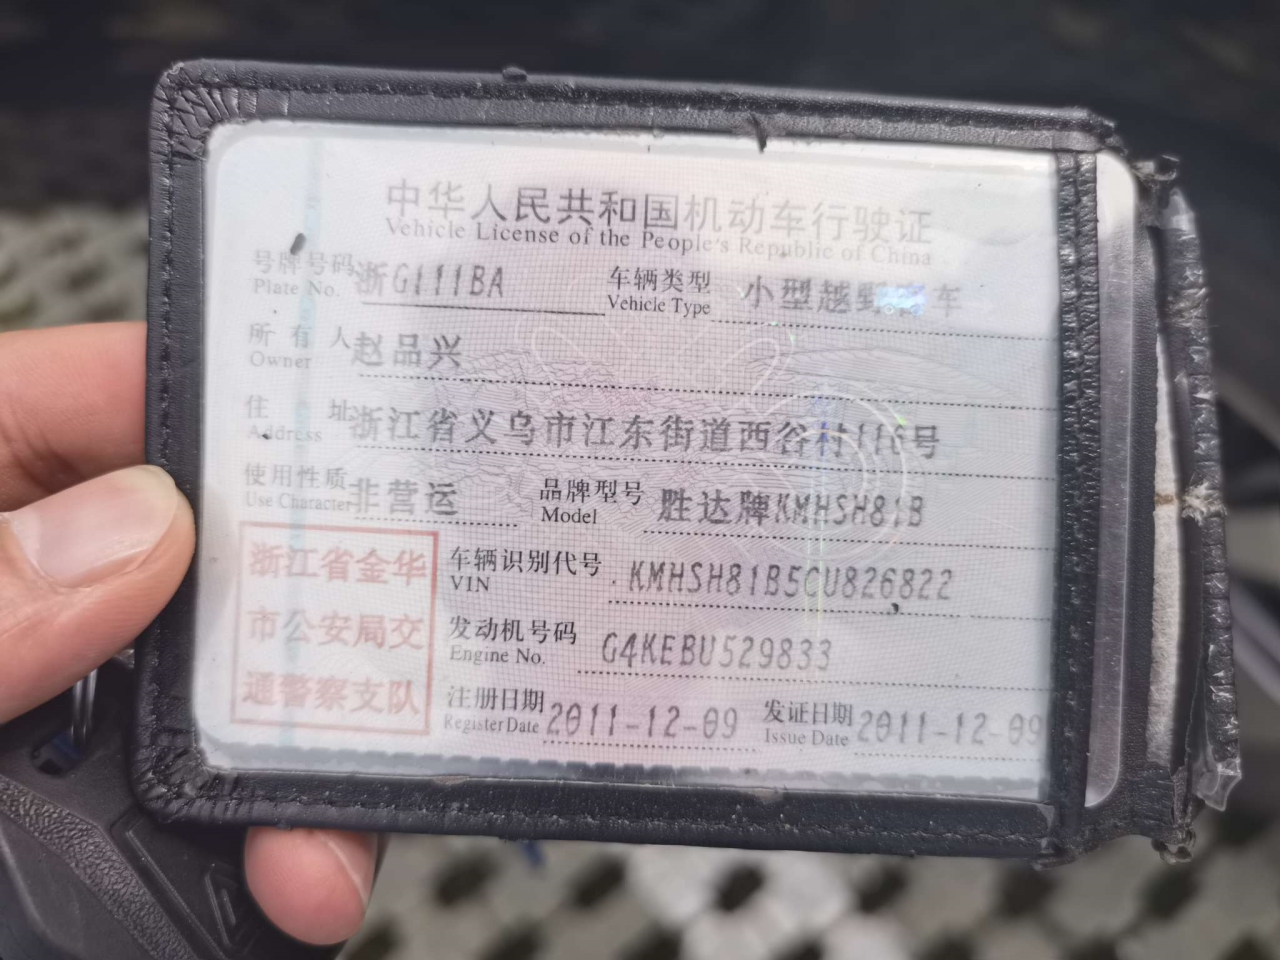 中华人民共和国机动车行驶证
Vehicle License of the People's Republic of China
号牌号码 浙G111BA 车辆类型 小型越野客车
Plate No. Vehicle Type
所有人 赵品兴
Owner
住址 浙江省义乌市江东街道西谷村116号
Address
使用性质 非营运 品牌型号 胜达牌KMHSH81B
Use Character Model
浙江省金华
市公安局交
通警察支队
车辆识别代号 KMHSH81B5CU826822
VIN
发动机号码 G4KEBU529833
Engine No.
注册日期 2011-12-09 发证日期 2011-12-09
Register Date Issue Date